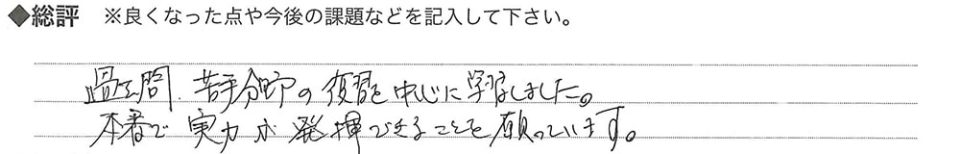 ◆総評 ※良くなった点や今後の課題などを記入して下さい。
過去問、苦手分野の復習を中心に学習しました。
本番で実力が発揮できることを願っています。